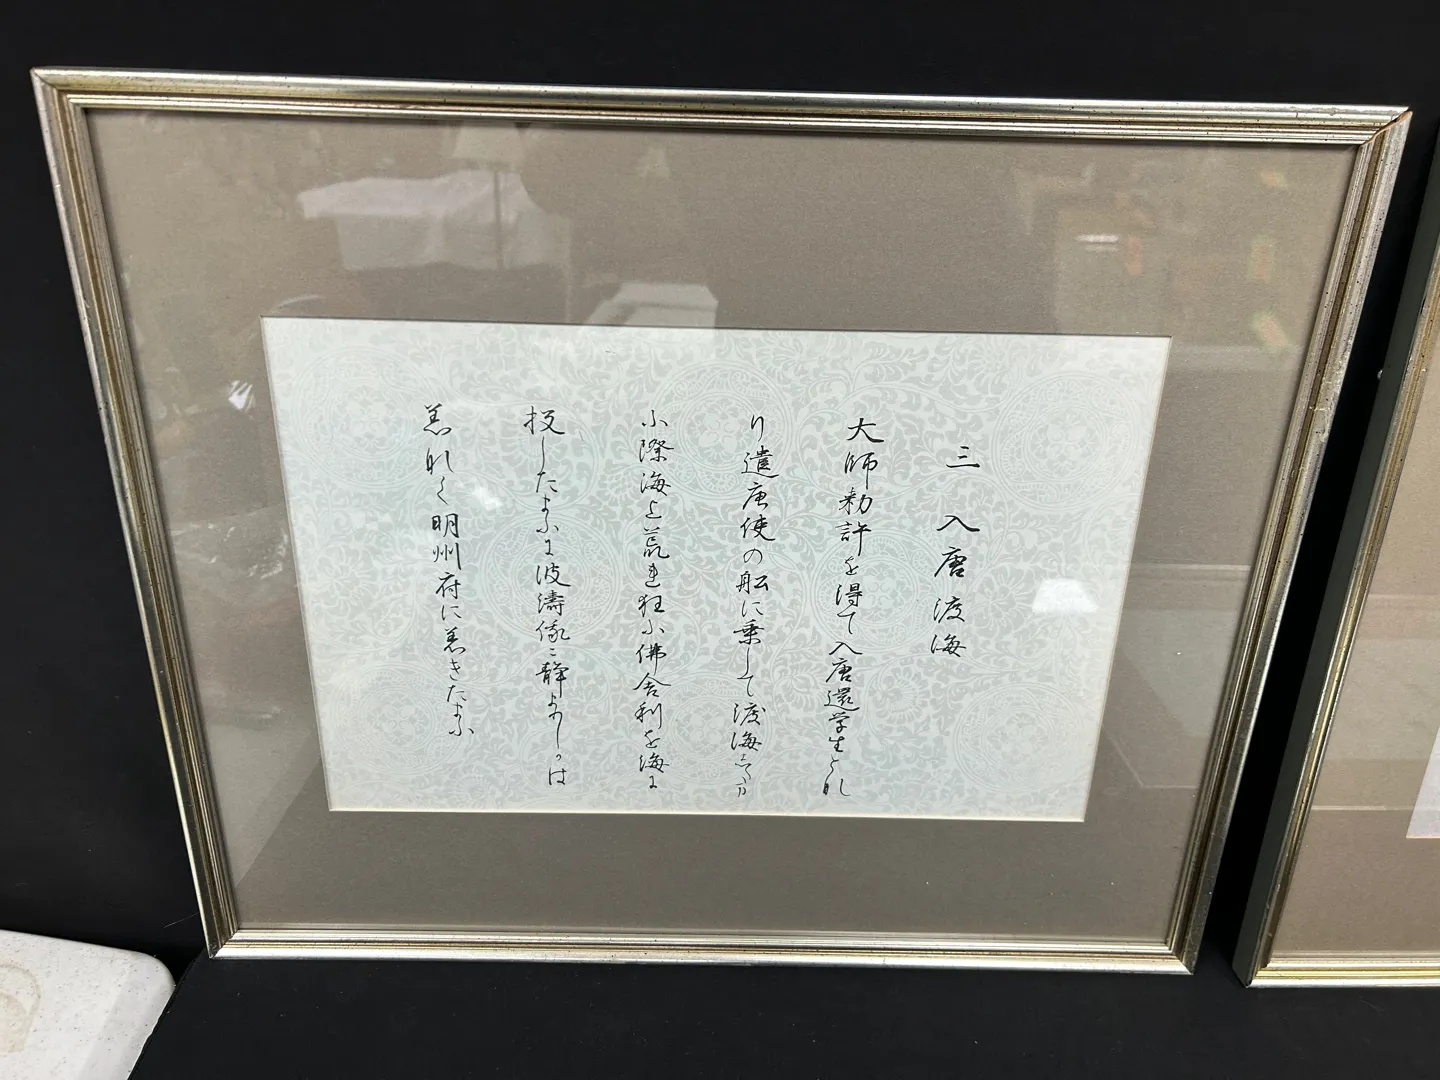 三 入唐渡海
大師勅許を得て入唐還学生となれ
り遣唐使の舩に乗して渡海したまふ
に際海上荒れ狂ふ佛舎利を海に
投したまふに波濤俄に静まりしかは
恙なく明州府に着きたまふ